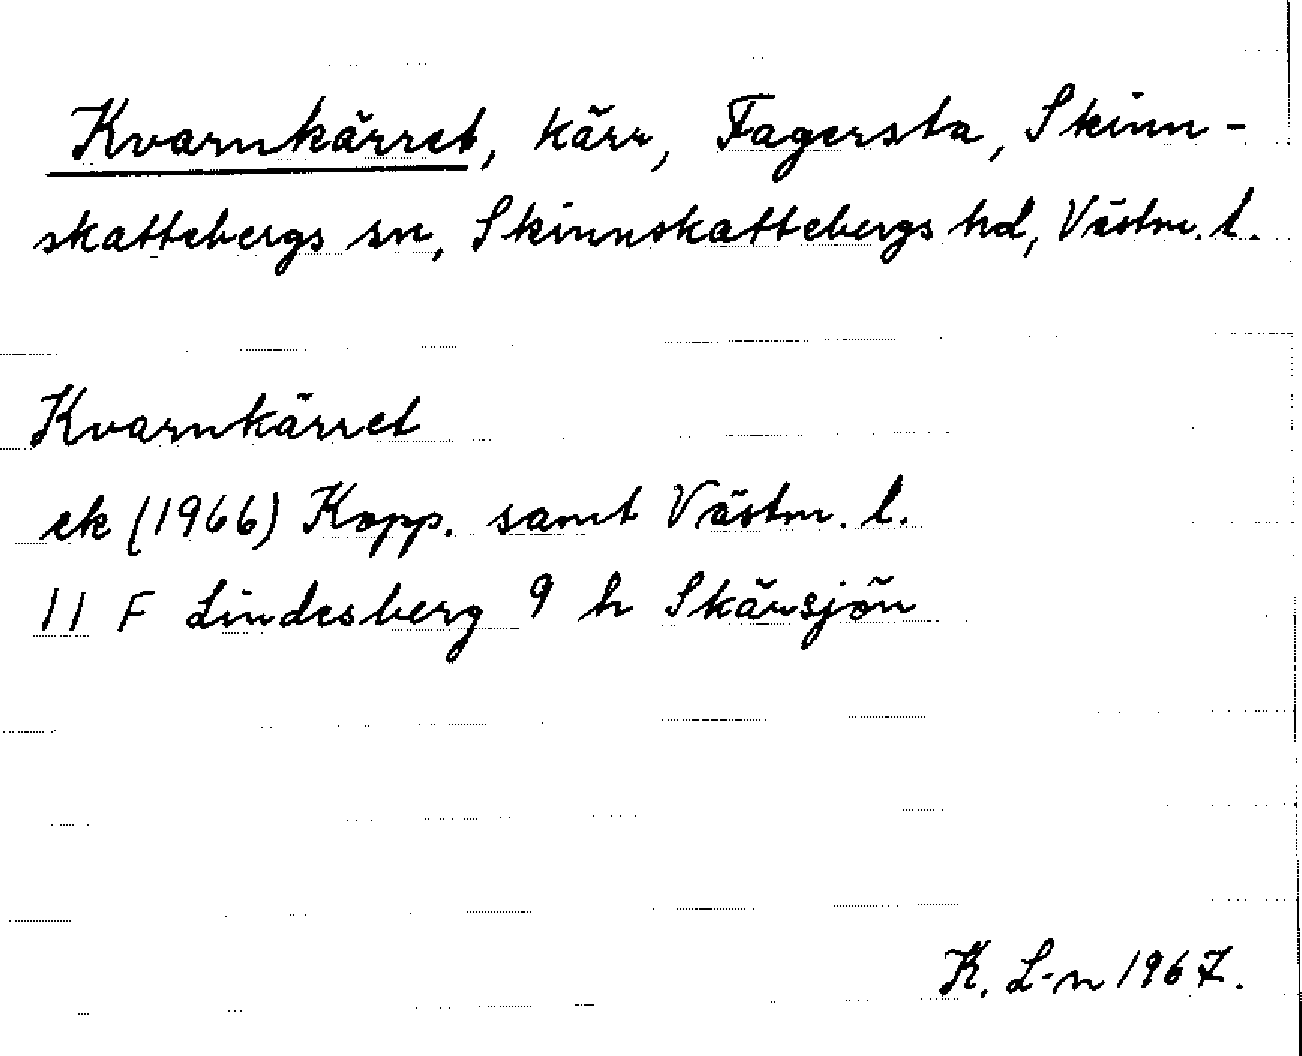 Kvarnkärret, kärr, Fagersta, Skinn-
skattebergs sn, Skinnskattebergs hd, Västm. l.
Kvarnkärret
ek (1966) Kopp. samt Västm. l.
11 F Lindesberg 9 h Skärsjön
K. L-n 1967.